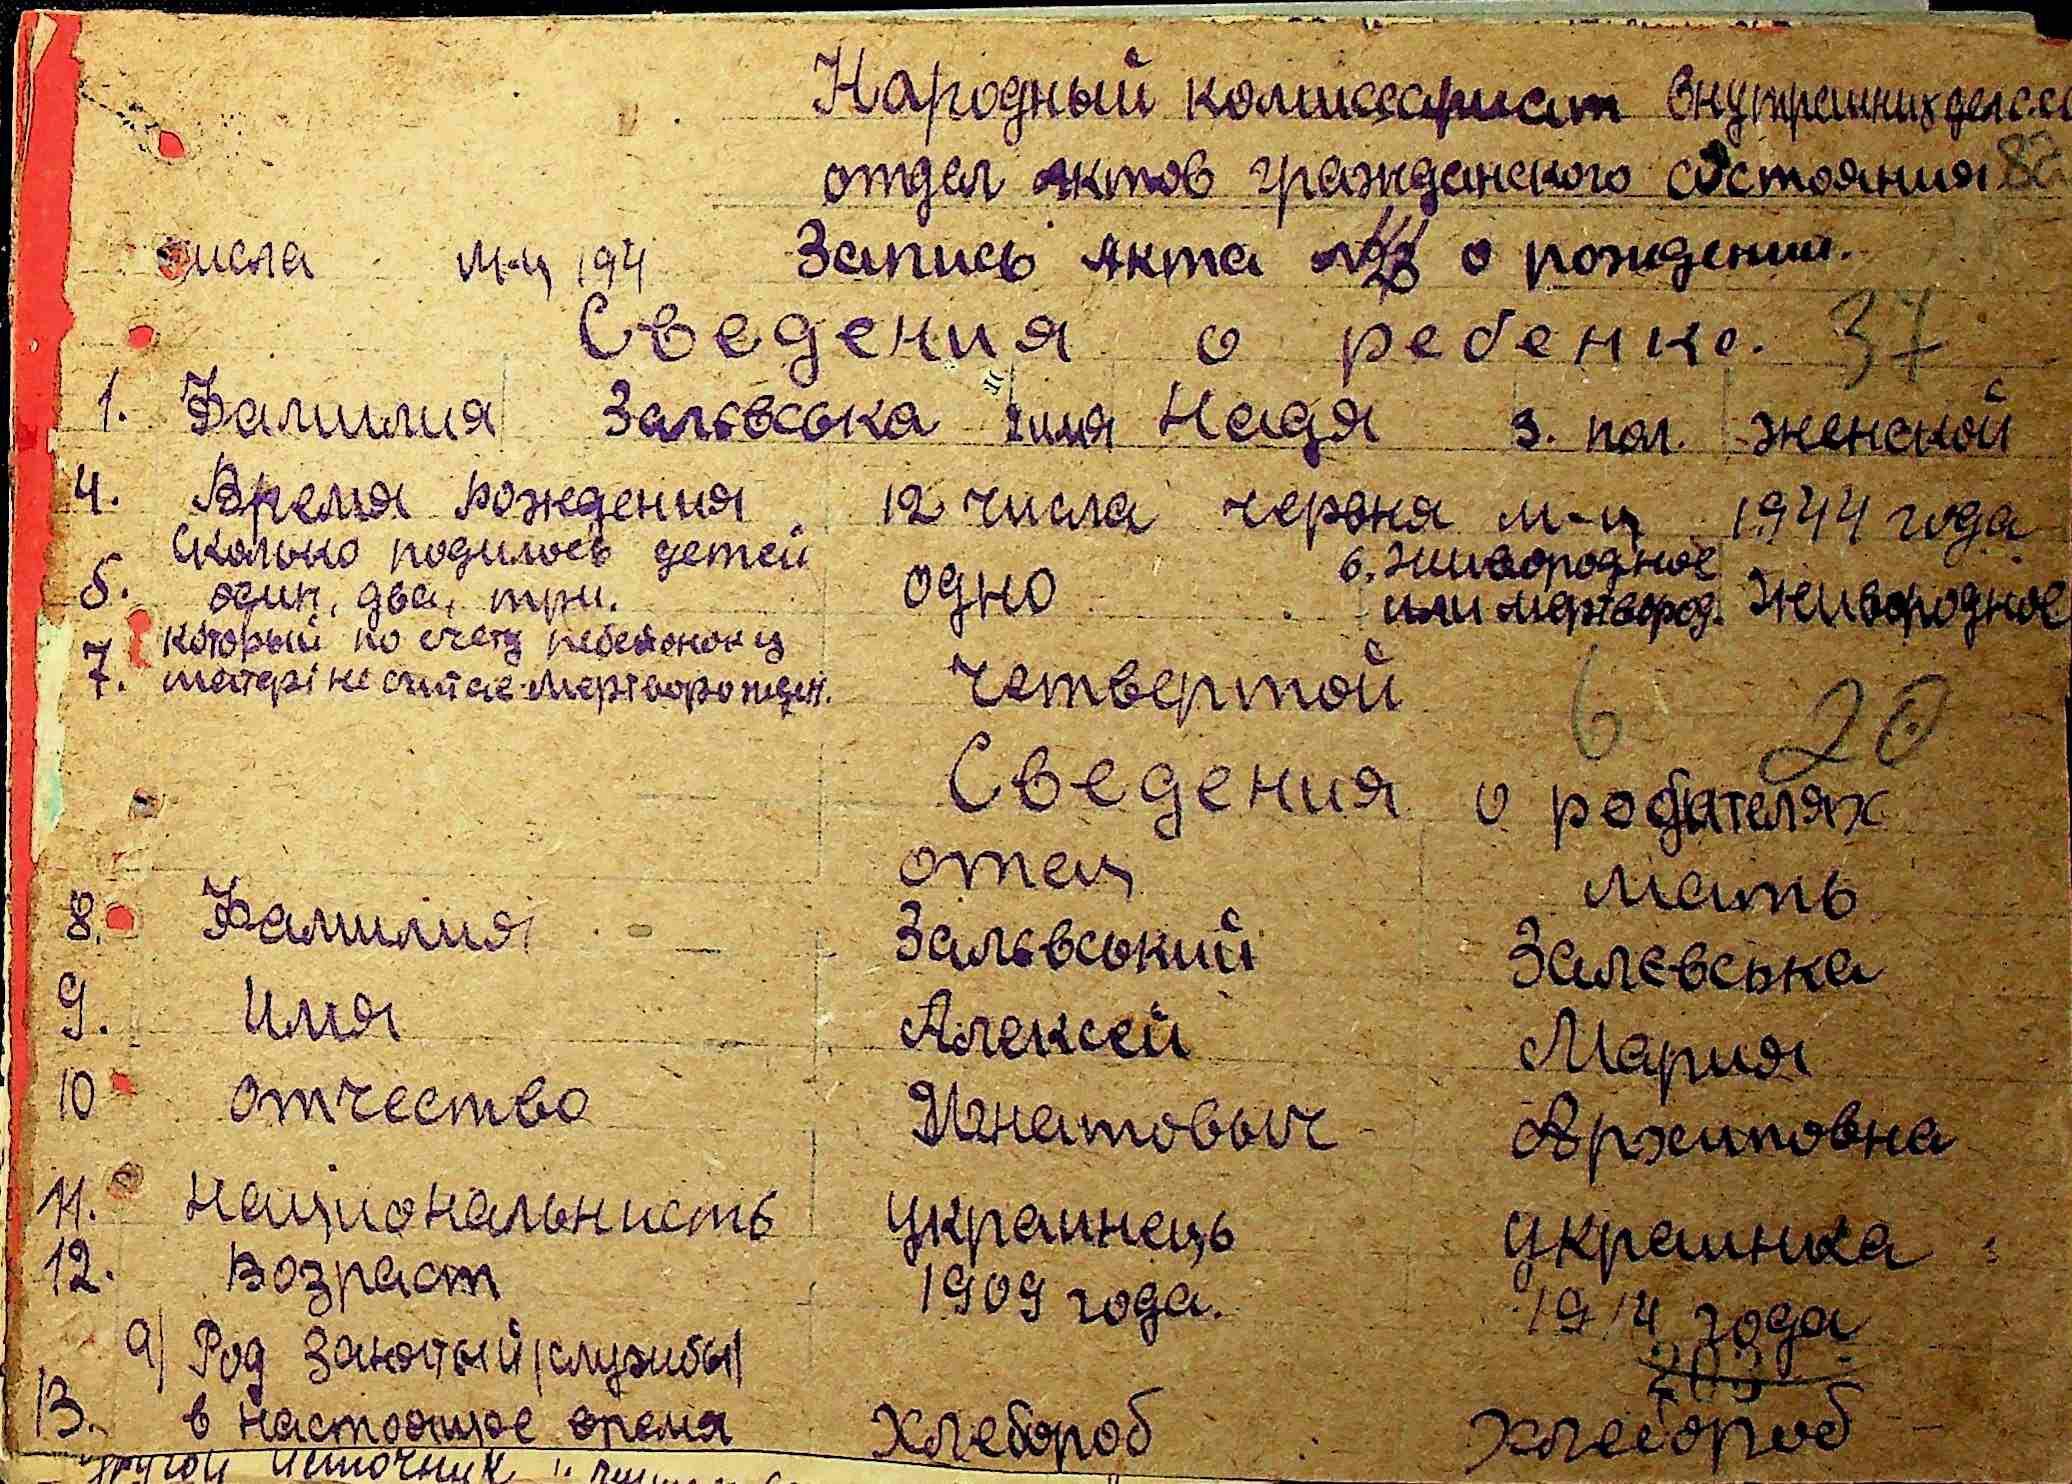 Народный комиссариат Внутренних дел с.с
отдел Актов гражданского состояния 82
числа м-ц 194 Запись Акта № о рождении.
Сведения о ребенке. 37
1. Фамилия Залєвська 2 имя Надя 3. пол. женской
4. Время рождения 12 числа червня м-ц 1944 года
Сколько родилось детей
5. один, два, три. одно 6. Живородное или мертвород. Живородное
который по счету ребейонок у
7. матері не считае мертворожден. четвертой 6 20
Сведения о родителях
отец мать
8. Фамилия Залєвський Залєвська
9. Имя Алексей Мария
10 отчество Игнатовыч Архиповна
11. Национальнисть украинець украинка
12. возраст 1909 года. 1914 года
а) Род занятый (службы) 203
13. в настоящое время хлебороб хлебороб
другой источник